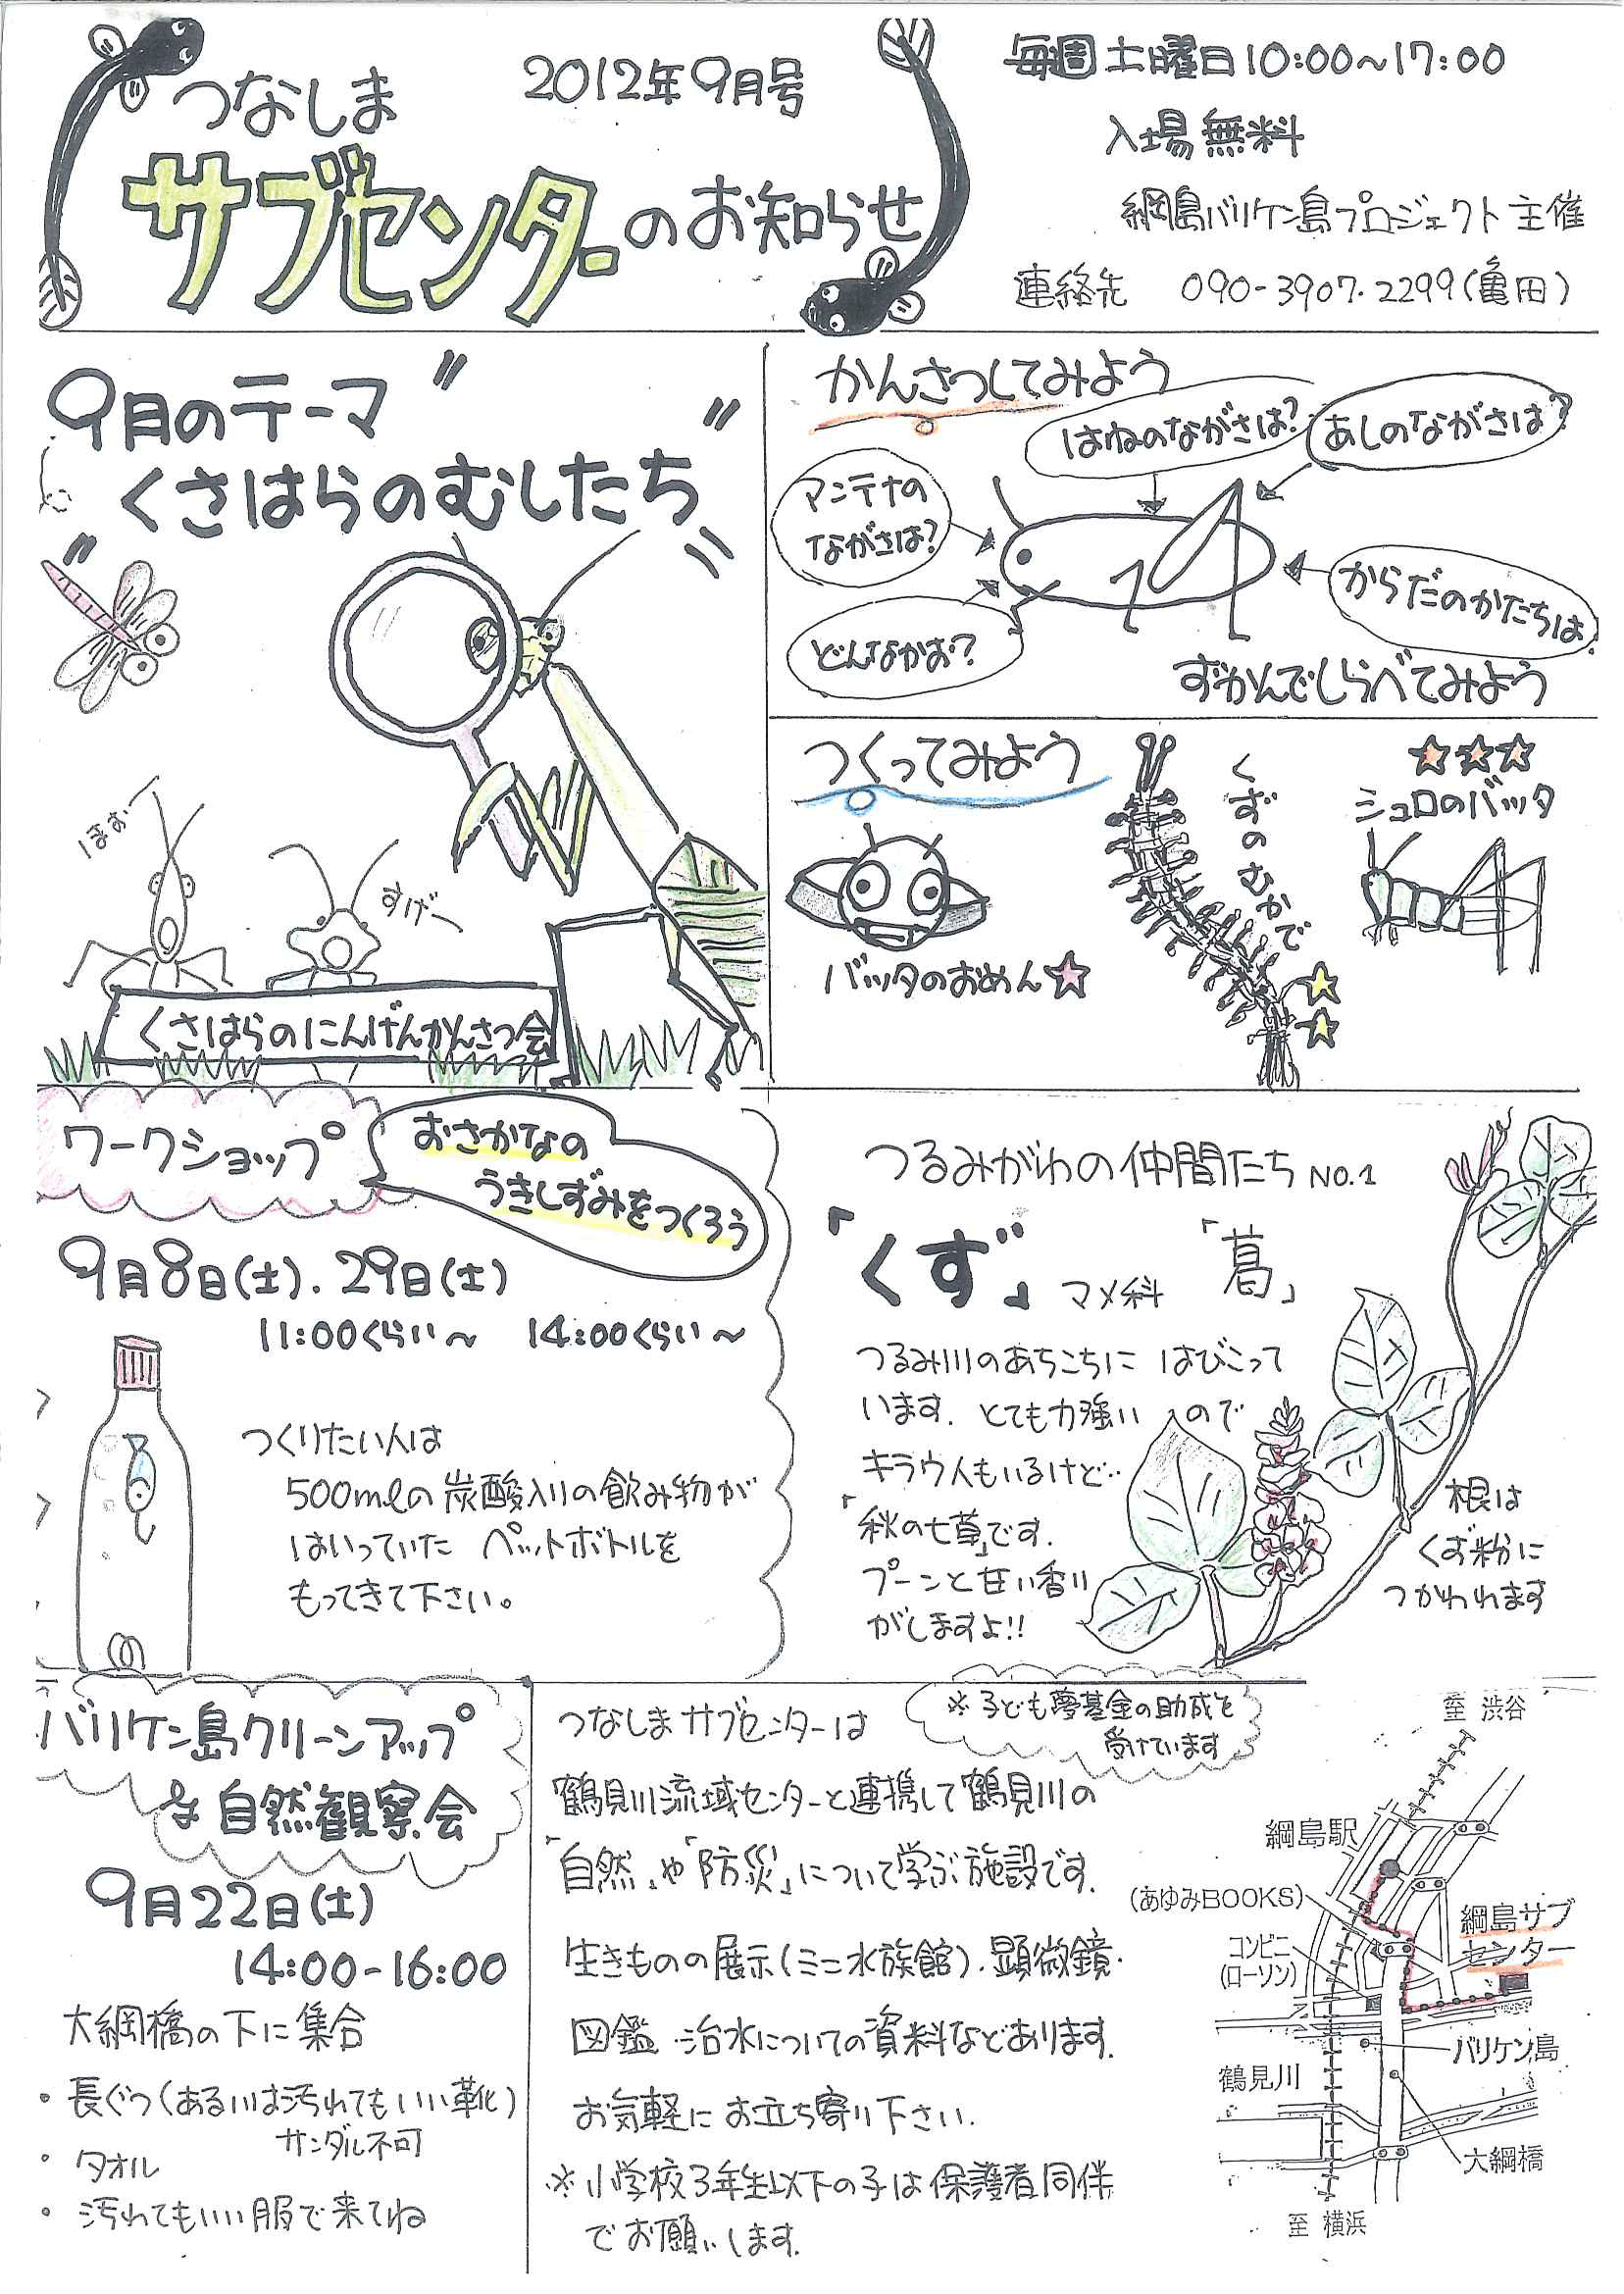 つなしま
2012年9月号
サブセンターのお知らせ
毎週土曜日10:00~17:00
入場無料
綱島バリケン島プロジェクト主催
連絡先 090-3907-2299(亀田)
9月のテーマ
"くさはらのむしたち"
ほぉー
すげー
くさはらのにんげんかんさつ会
かんさつしてみよう
はねのながさは?
あしのながさは?
アンテナの
ながさは?
からだのかたちは
どんなかお?
ずかんでしらべてみよう
つくってみよう
バッタのおめん☆
くずのむかで
☆☆
☆☆☆
シュロのバッタ
ワークショップ
おさかなの
うきしずみをつくろう
9月8日(土).29日(土)
11:00くらい~ 14:00くらい~
つくりたい人は
500mlの炭酸入りの飲み物が
はいっていた ペットボトルを
もってきて下さい。
つるみがわの仲間たち NO.1
「くず」 マメ科 「葛」
つるみ川のあちこちに はびこって
います. とても力強い ので
キラウ人もいるけど‥
「秋の七草」です.
プーンと甘い香り
がしますよ!!
根は
くず粉に
つかわれます
バリケン島クリーンアップ
& 自然観察会
9月22日(土)
14:00-16:00
大綱橋の下に集合
・長ぐつ(あるいは汚れてもいい靴)
サンダル不可
・タオル
・汚れてもいい服で来てね
つなしまサブセンターは
※子ども夢基金の助成を
受けています
鶴見川流域センターと連携して鶴見川の
「自然」や「防災」について学ぶ施設です.
生きものの展示(ミニ水族館).顕微鏡・
図鑑 治水についての資料などあります.
お気軽にお立ち寄り下さい.
※小学校3年生以下の子は保護者同伴
でお願いします.
至 渋谷
綱島駅
(あゆみBOOKS)
綱島サブ
センター
コンビニ
(ローソン)
バリケン島
鶴見川
大綱橋
至 横浜